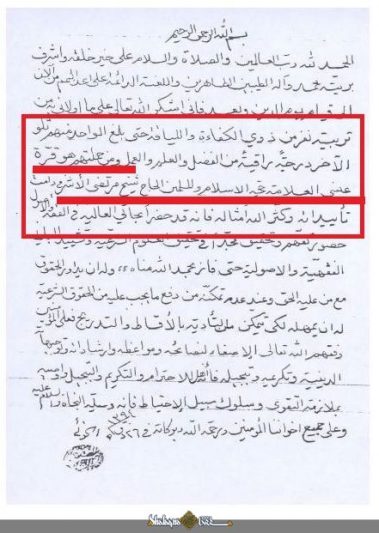 بسم الله الرحمن الرحيم
الحمد لله رب العالمين والصلاة والسلام على خير خلقه واشرف
بريته محمد وآله الطيبين الطاهرين واللعنة الدائمة على اعدائهم من الآن
الى قيام يوم الدين وبعد فاني اشكر الله تعالى على ما اولاني من
تربية نفر من ذوي الكفاءة واللياقة حتى بلغ الواحد منهم تلو
الآخر درجة راقية من الفضل والعلم والعمل ومن جملتهم هو قرة
عيني العلامة حجة الاسلام والمسلمين الحاج شيخ مرتضى الاشرفي دامت
تأييداته وكثر الله امثاله فانه قد حضر ابحاثي العالية في الفقه والاصول
حضور تفهم وتحقيق مجدا في تحقيق العلوم الشرعية وتشييد المباني
الفقهية والاصولية حتى فاز بحمد الله مناه وله ان يداور الحقوق
مع من عليه الحق وعند عدم تمكنه من دفع ما يجب عليه من الحقوق الشرعية
له ان يمهله لكي يتمكن من التأدية بالاقساط والتدريج فعلى المؤمنين
وفقهم الله تعالى الاصغاء لنصائحه ومواعظه وارشاداته وتوجيهاته
الدينية وتكريمه وتبجيله فانه اهل للاحترام والتكريم والتبجيل واوصيه
بملازمة التقوى وسلوك سبيل الاحتياط فانه وسيلة النجاة والسلام عليه
وعلى جميع اخواننا المؤمنين ورحمة الله وبركاته في ٢٦
الخوئي
Shafaqna
شفقنا